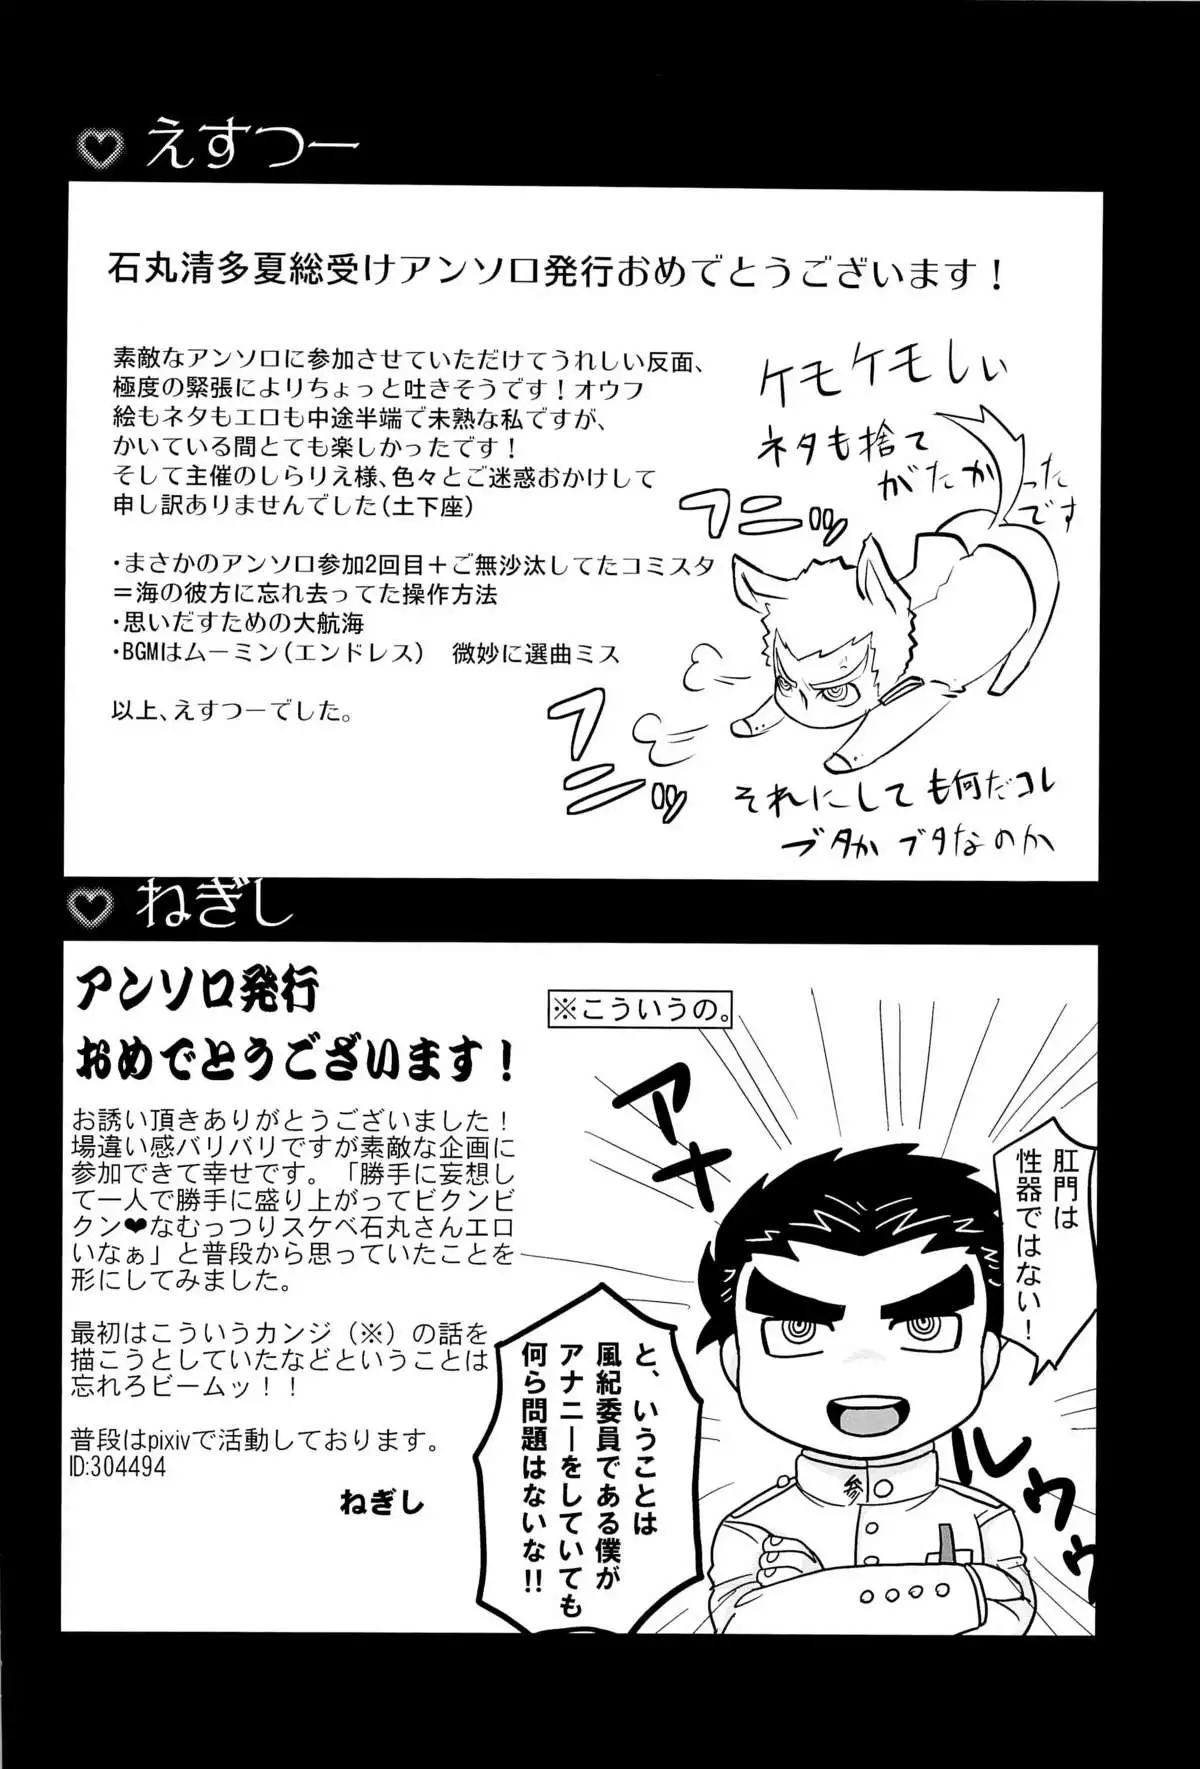 えすつー
石丸清多夏総受けアンソロ発行おめでとうございます！
素敵なアンソロに参加させていただけてうれしい反面、
極度の緊張によりちょっと吐きそうです！オウフ
絵もネタもエロも中途半端で未熟な私ですが、
かいている間とても楽しかったです！
そして主催のしらりえ様、色々とご迷惑おかけして
申し訳ありませんでした（土下座）
・まさかのアンソロ参加2回目＋ご無沙汰してたコミスタ
＝海の彼方に忘れ去ってた操作方法
・思いだすための大航海
・BGMはムーミン（エンドレス）　微妙に選曲ミス
以上、えすつーでした。
ケモケモしい
ネタも捨て
がたかったです
フニッ
フニッ
それにしても何だコレ
ブタか ブタなのか
ねぎし
アンソロ発行
おめでとうございます！
お誘い頂きありがとうございました！
場違い感バリバリですが素敵な企画に
参加できて幸せです。「勝手に妄想し
て一人で勝手に盛り上がってビクンビ
クン❤なむっつりスケベ石丸さんエロ
いなぁ」と普段から思っていたことを
形にしてみました。
最初はこういうカンジ（※）の話を
描こうとしていたなどということは
忘れろビームッ！！
普段はpixivで活動しております。
ID:304494
ねぎし
※こういうの。
アナルゥゥ
肛門は
性器ではない！
と、いうことは
風紀委員である僕が
アナニーをしていても
何ら問題はないな!!
参